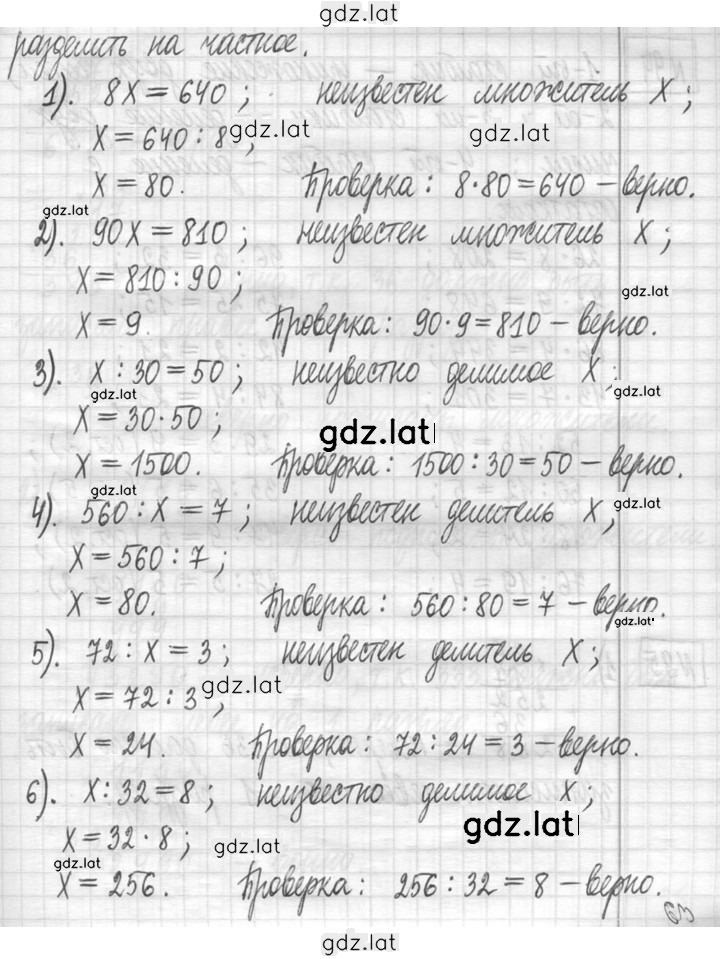 gdz.lat
разделить на частное.
1). 8X = 640 ; неизвестен множитель X ;
X = 640 : 8 ; gdz.lat gdz.lat
X = 80. Проверка : 8·80 = 640 – верно.
gdz.lat
2). 90X = 810 ; неизвестен множитель X ;
X = 810 : 90 ; gdz.lat
X = 9. Проверка : 90·9 = 810 – верно.
3). X : 30 = 50 ; неизвестно делимое X ;
gdz.lat gdz.lat
X = 30·50 ; gdz.lat
X = 1500. Проверка : 1500 : 30 = 50 – верно.
gdz.lat gdz.lat
4). 560 : X = 7 ; неизвестен делитель X,
X = 560 : 7 ;
X = 80. Проверка : 560 : 80 = 7 – верно.
gdz.lat
5). 72 : X = 3 ; неизвестен делитель X ;
X = 72 : 3 , gdz.lat
X = 24. Проверка : 72 : 24 = 3 – верно.
6). X : 32 = 8 ; неизвестно делимое X ;
gdz.lat
X = 32 · 8 ; gdz.lat
gdz.lat
X = 256. Проверка : 256 : 32 = 8 – верно.
63
gdz.lat